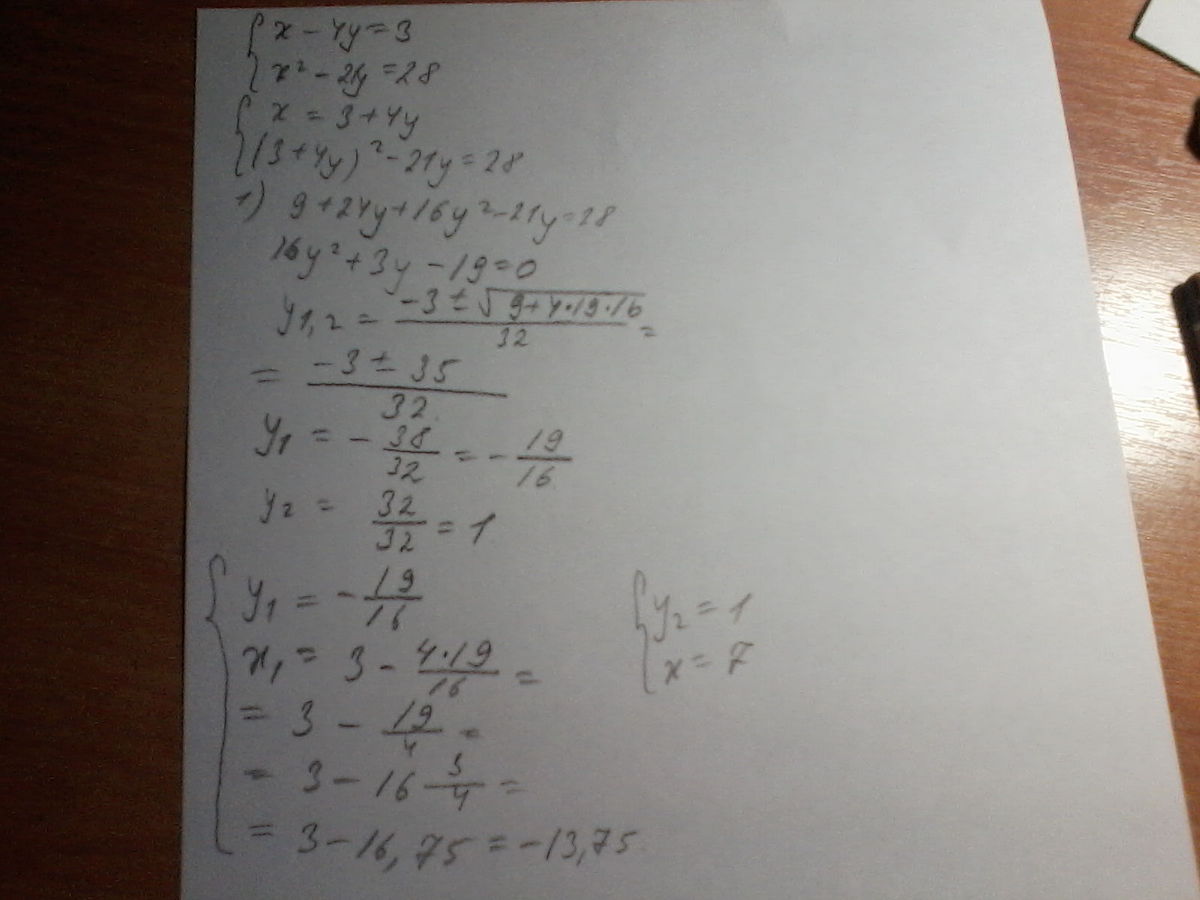 { x - 4y = 3
x² - 21y = 28
{ x = 3 + 4y
(3 + 4y)² - 21y = 28
1) 9 + 24y + 16y² - 21y = 28
16y² + 3y - 19 = 0
y1,2 = (-3 ± √(9 + 4·19·16)) / 32 =
= (-3 ± 35) / 32
y1 = - 38/32 = - 19/16
y2 = 32/32 = 1
{ y1 = - 19/16
x1 = 3 - 4·19/16 =
= 3 - 19/4 =
= 3 - 16 3/4 =
= 3 - 16,75 = -13,75
{ y2 = 1
x = 7